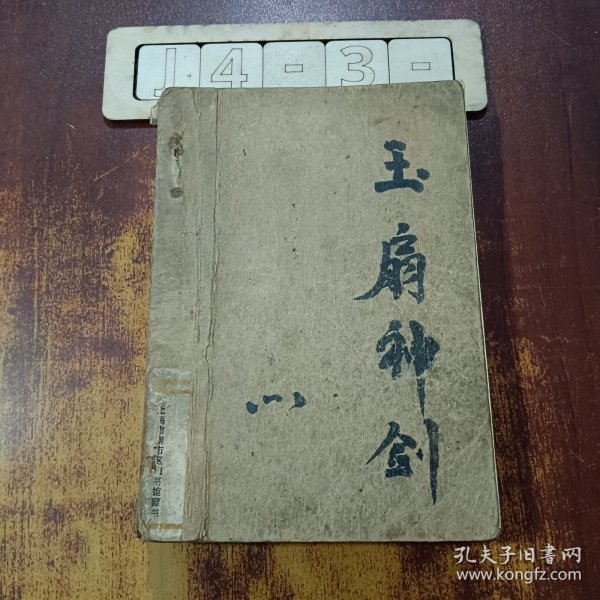 J4-3-
玉扇神剑
上海市南市区
书馆藏书
孔夫子旧書网
www.kongfz.com